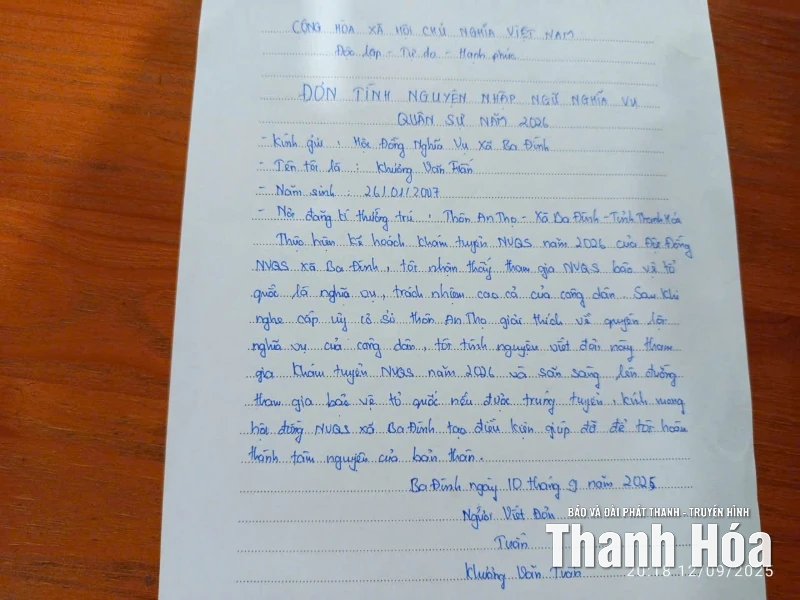 CỘNG HÒA XÃ HỘI CHỦ NGHĨA VIỆT NAM
Độc lập - Tự do - Hạnh phúc
ĐƠN TÌNH NGUYỆN NHẬP NGŨ NGHĨA VỤ
QUÂN SỰ NĂM 2026
- Kính gửi : Hội Đồng Nghĩa Vụ Xã Ba Đình
- Tên tôi là : Khương Văn Tuấn
- Năm sinh : 26/01/2007
- Nơi đăng kí thường trú : Thôn An Thọ - Xã Ba Đình - Tỉnh Thanh Hóa
Thực hiện kế hoạch khám tuyển NVQS năm 2026 của Hội Đồng
NVQS xã Ba Đình, tôi nhận thấy tham gia NVQS bảo vệ tổ
quốc là nghĩa vụ, trách nhiệm cao cả của công dân. Sau khi
nghe cấp uỷ cơ sở thôn An Thọ giải thích về quyền lợi
nghĩa vụ của công dân, tôi tình nguyện viết đơn này tham
gia khám tuyển NVQS năm 2026 và sẵn sàng lên đường
tham gia bảo vệ tổ quốc nếu được trúng tuyển, kính mong
hội đồng NVQS xã Ba Đình tạo điều kiện giúp đỡ để tôi hoàn
thành tâm nguyện của bản thân.
Ba Đình ngày 10 tháng 9 năm 2025
Người Viết Đơn
Tuấn
Khương Văn Tuấn
BÁO VÀ ĐÀI PHÁT THANH - TRUYỀN HÌNH
Thanh Hóa
20:18 12/09/2025